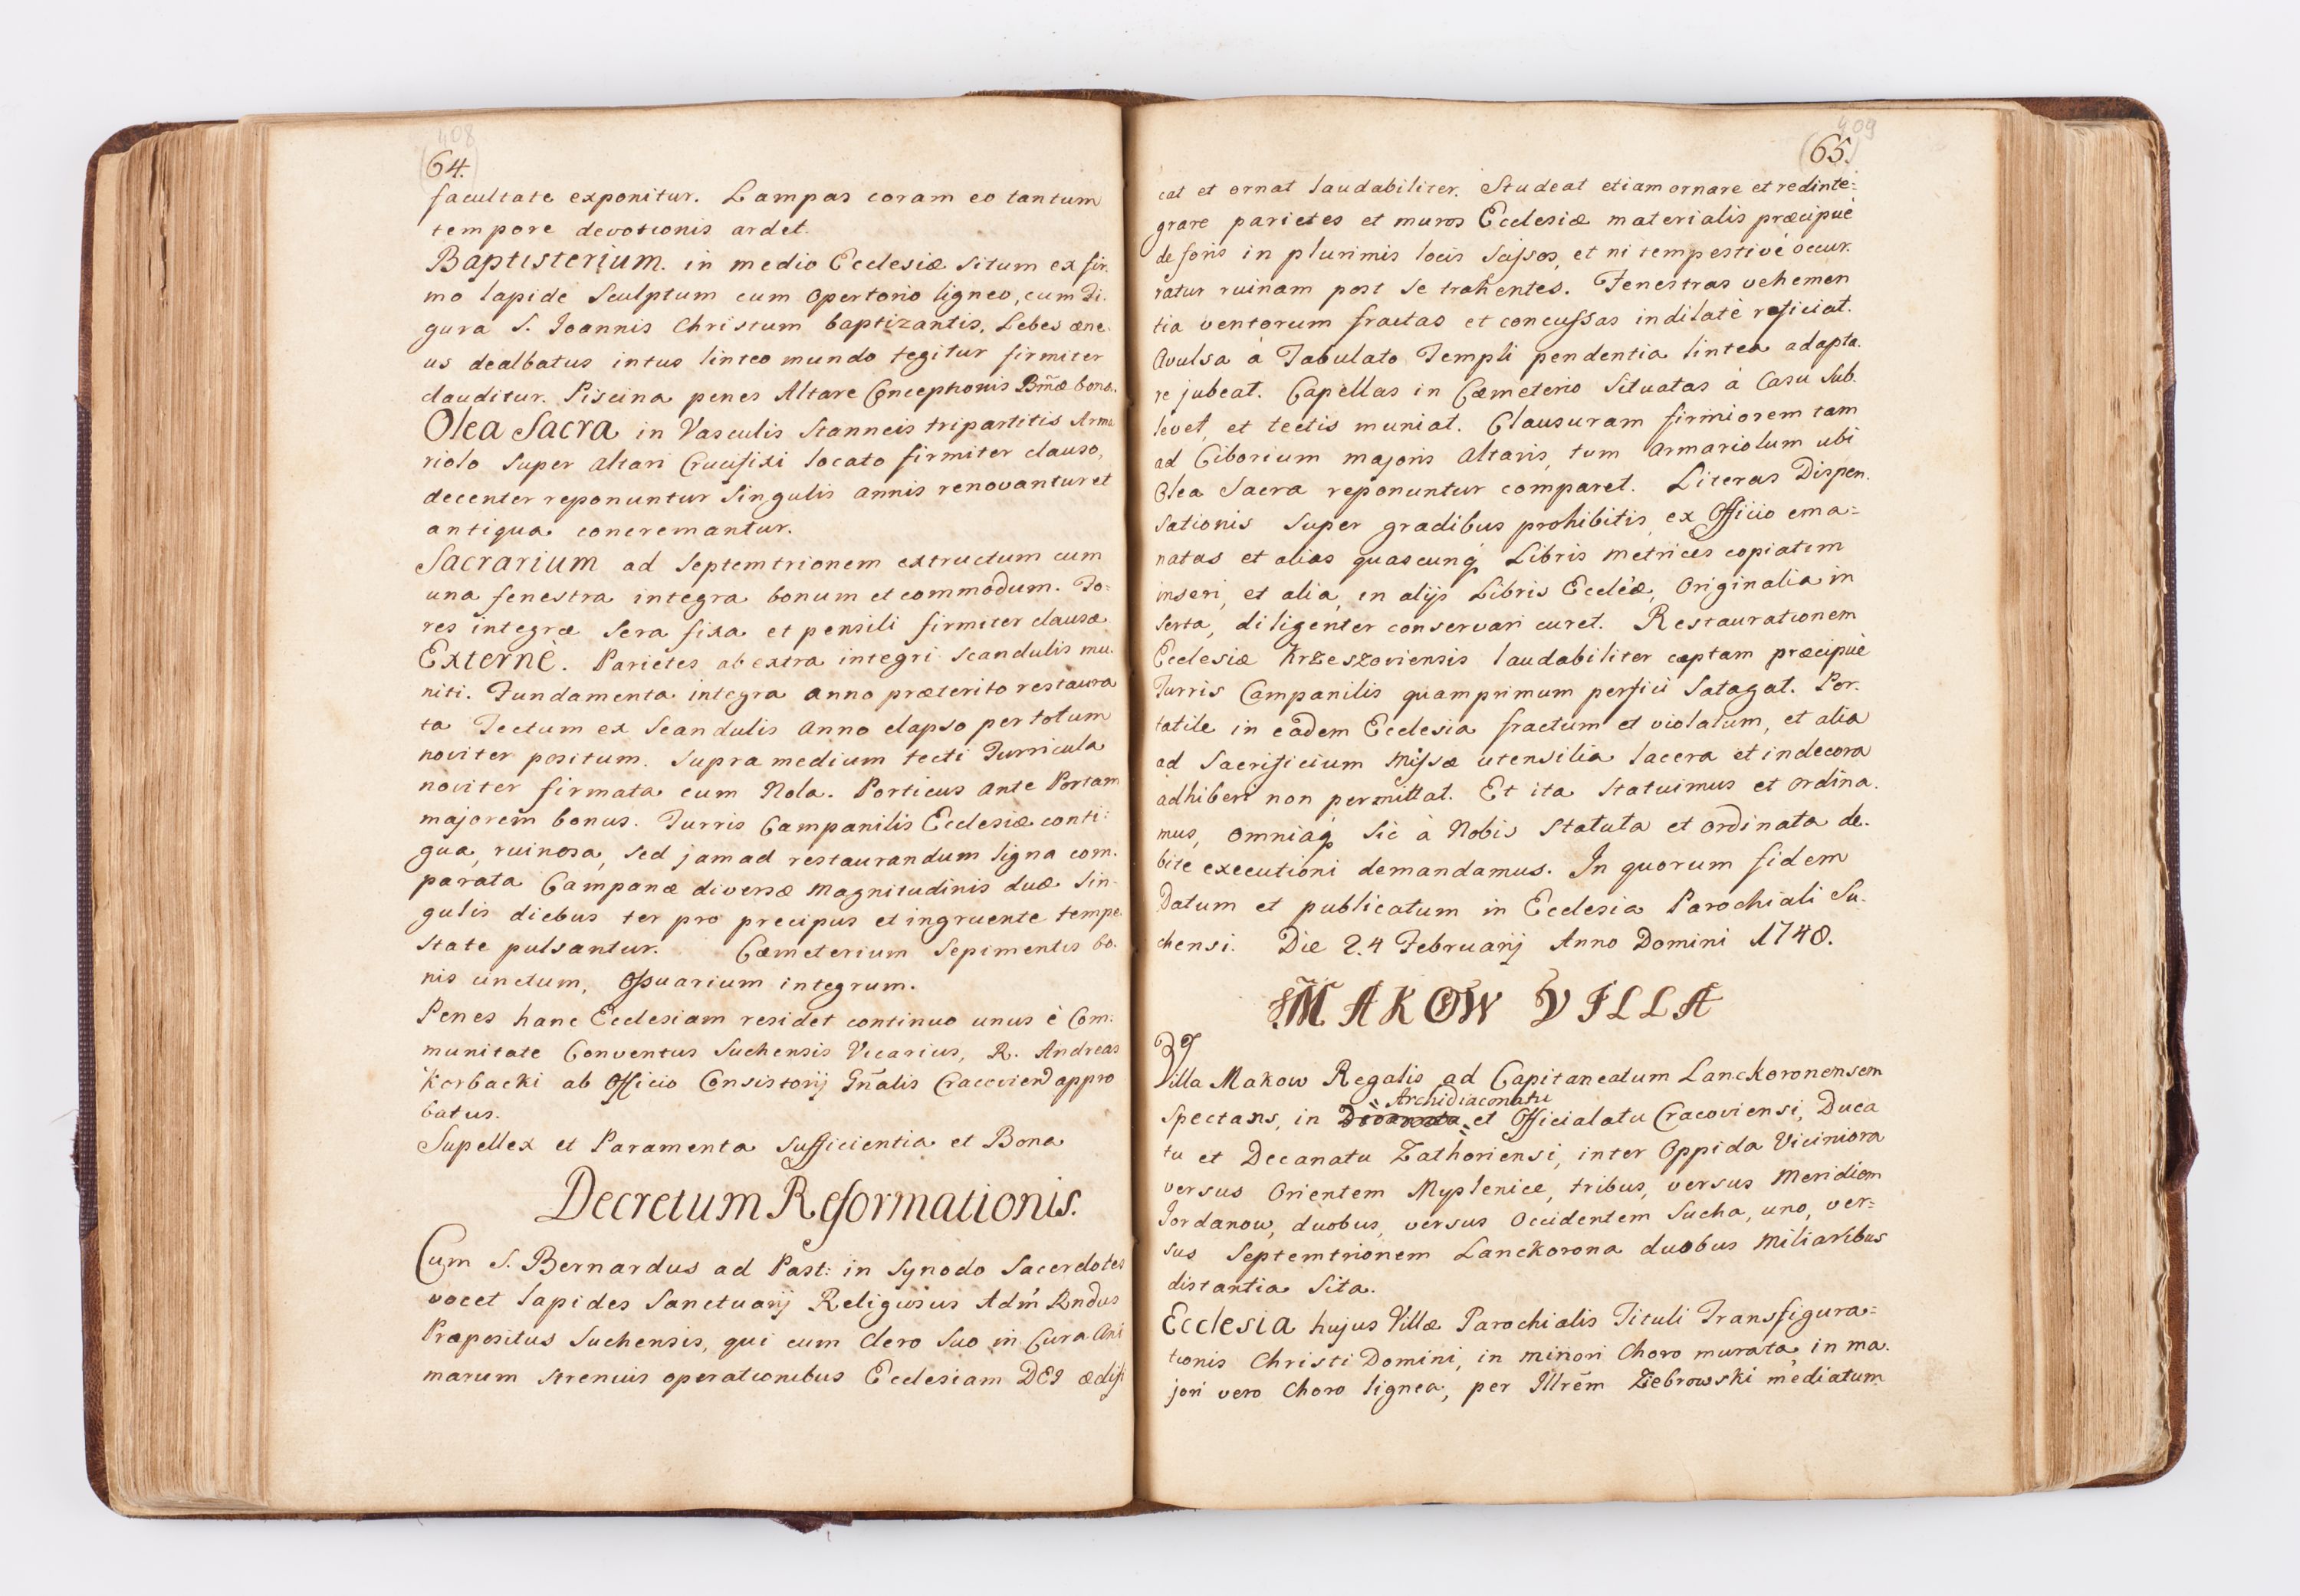 408
64.
facultate exponitur. Lampas coram eo tantum
tempore devotionis ardet.
Baptisterium. in medio Ecclesiæ situm ex fir.
mo lapide sculptum cum opertorio ligneo, cum Fi.
gura S. Joannis Christum baptizantis. Lebes æne.
us dealbatus intus linteo mundo tegitur firmiter
clauditur. Piscina penes Altare Conceptionis Bm̃æ bona.
Olea Sacra in Vasculis Stanneis tripartitis Arma
riolo super Altari Crucifixi locato firmiter clauso,
decenter reponuntur singulis annis renovantur et
antiqua concremantur.
Sacrarium ad Septemtrionem extructum cum
una fenestra integra bonum et commodum. Fo=
res integræ sera fixa et pensili firmiter clausæ
Externè. Parietes ab extra integri scandulis mu.
niti. Fundamenta integra anno præterito restaura
ta Tectum ex Scandulis Anno elapso per totum
noviter positum. Supra medium tecti Turricula
noviter firmata cum Nola. Porticus ante Portam
majorem bonus. Turris Campanilis Ecclesiæ conti:
gua, ruinosa, sed jam ad restaurandum ligna com.
parata Campanæ diversæ Magnitudinis duæ sin
gulis diebus ter pro precipus et ingruente tempe
state pulsantur. Cæmeterium Sepimentis bo.
nis cinctum, Ossuarium integrum.
Penes hanc Ecclesiam residet continuo unus è Com:
munitate Conventus Suchensis Vicarius, R. Andreas
Korbacki ab Officio Consistorij Gñalis Cracovien appro
batus.
Supellex et Paramenta Sufficientia et Bona
Decretum Reformationis.
Cum S. Bernardus ad Past: in Synodo Sacerdotes
vocet lapides Sanctuarij Religiosus Adm̃ Rndus
Præpositus Suchensis, qui cum clero suo in Cura Ani
marum strenuis operationibus Ecclesiam DEI ædifi
409
65.
cat et ornat laudabiliter. Studeat etiam ornare et redinte=
grare parietes et muros Ecclesiæ materialis præcipuè
de foris in plurimis locis scissos, et ni tempestivè occur.
ratur ruinam post se trahentes. Fenestras vehemen
tia ventorum fractas et concussas indilatè reficiat.
Avulsa à Tabulato Templi pendentia lintea adapta.
re jubeat. Capellas in Cæmeterio Situatas à Casu Sub.
levet, et tectis muniat. Clausuram firmiorem tam
ad Ciborium majoris Altaris, tum Armariolum ubi
Olea Sacra reponuntur comparet. Literas Dispen.
sationis super gradibus prohibitis, ex Officio ema=
natas et alias quascunq̃ Libris Metrices copiatim
inseri, et alia, in alijs Libris Eccleæ, Originalia in
serta, diligenter conservari curet. Restaurationem
Ecclesiæ Krzeszoviensis laudabiliter cæptam præcipuè
Turris Campanilis quamprimum perfici Satagat. Por.
tatile in eadem Ecclesia fractum et violatum, et alia
ad Sacrificium Missæ utensilia lacera et indecora
adhiberi non permittat. Et ita Statuimus et ordina.
mus, omniaq̃ Sic à Nobis Statuta et ordinata de.
bitè executioni demandamus. In quorum fidem
Datum et publicatum in Ecclesia Parochiali Su.
chensi. Die 24 Februarij Anno Domini 1748.
MAKOW VILLA
Villa Makow Regalis ad Capitaneatum Lanckoronensem
Archidiaconatu
Spectans, in et Officialatu Cracoviensi, Duca
tu et Decanatu Zathoriensi, inter Oppida Viciniora
versus Orientem Myslenice, tribus, versus Meridiem
Jordanow, duobus, versus Occidentem Sucha, uno, ver=
sus Septemtrionem Lanckorona duobus Miliaribus
distantia Sita.
Ecclesia hujus Villæ Parochialis Tituli Transfigura=
tionis Christi Domini, in minori Choro murata, in ma.
jori vero Choro lignea, per Illrẽm Zebrowski mediatum